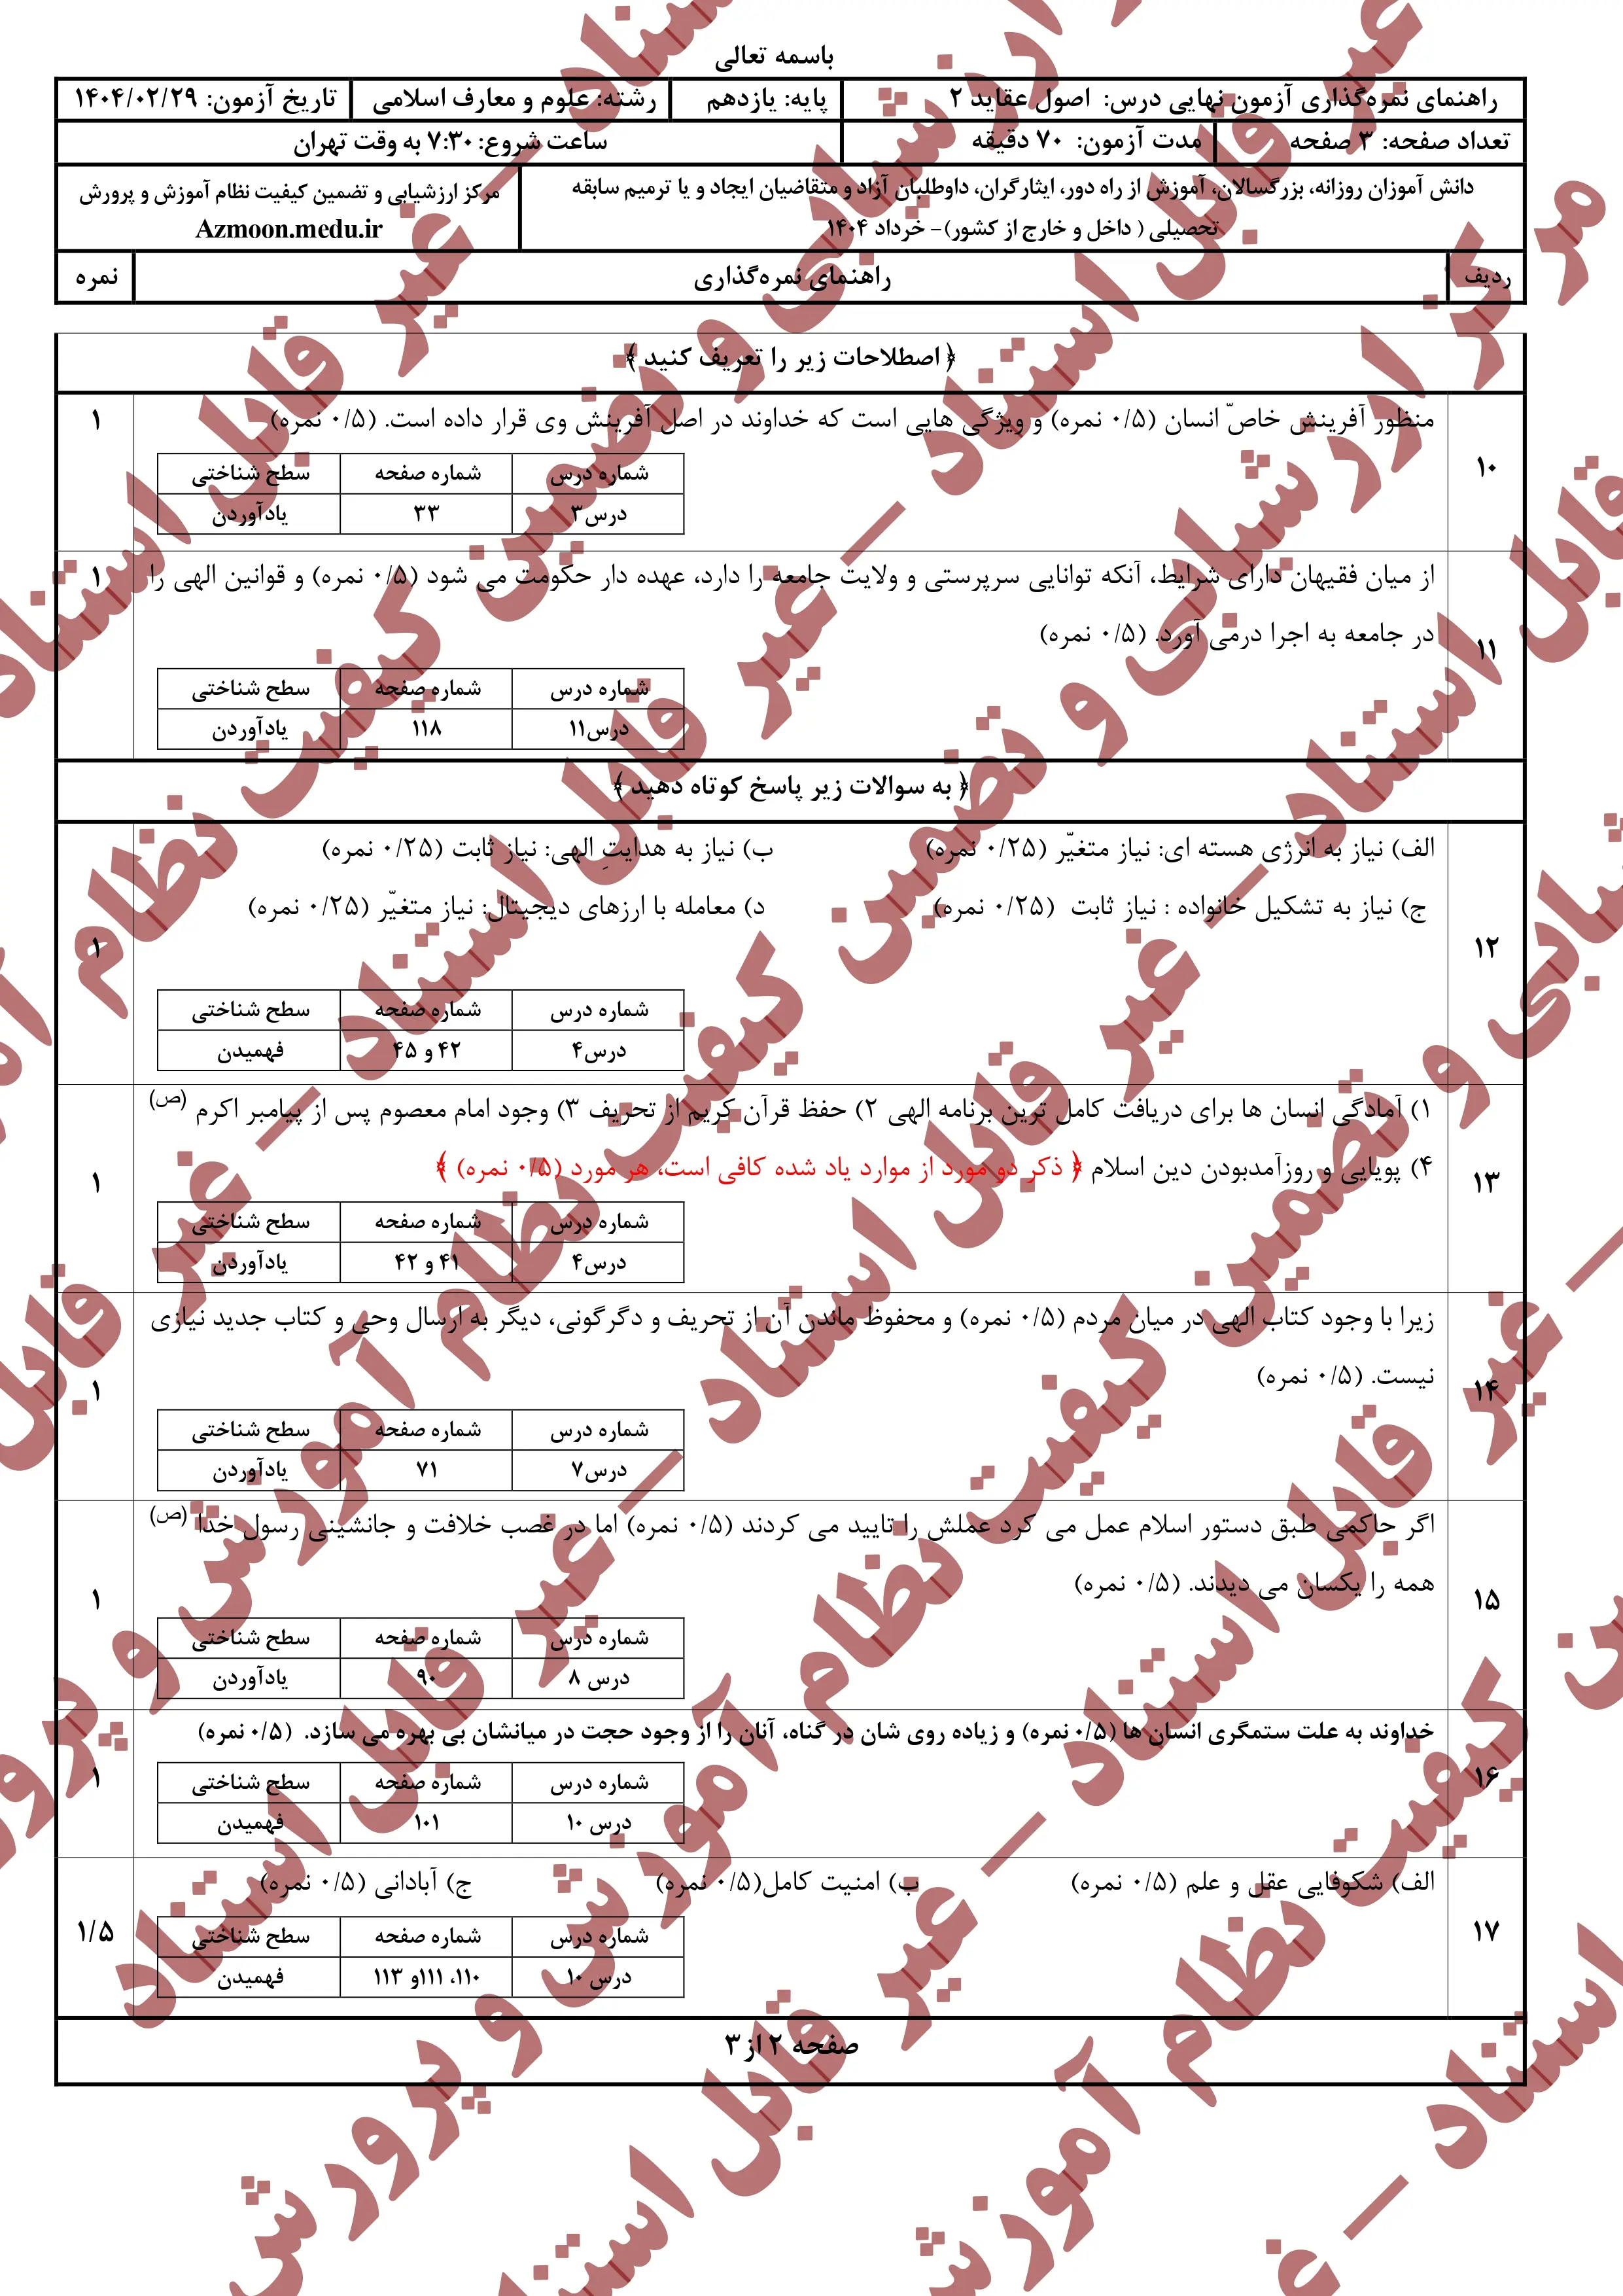 باسمه تعالی
راهنمای نمره‌گذاری آزمون نهایی درس: اصول عقاید ۲ پایه: یازدهم رشته: علوم و معارف اسلامی تاریخ آزمون: ۱۴۰۴/۰۲/۲۹
تعداد صفحه: ۳ صفحه مدت آزمون: ۷۰ دقیقه ساعت شروع: ۷:۳۰ به وقت تهران
دانش آموزان روزانه، بزرگسالان، آموزش از راه دور، ایثارگران، داوطلبان آزاد و متقاضیان ایجاد و یا ترمیم سابقه
تحصیلی ( داخل و خارج از کشور)- خرداد ۱۴۰۴
مرکز ارزشیابی و تضمین کیفیت نظام آموزش و پرورش
Azmoon.medu.ir
ردیف راهنمای نمره‌گذاری نمره
﴿ اصطلاحات زیر را تعریف کنید ﴾
۱۰ منظور آفرینش خاصّ انسان (۰/۵ نمره) و ویژگی هایی است که خداوند در اصل آفرینش وی قرار داده است. (۰/۵ نمره) ۱
شماره درس شماره صفحه سطح شناختی
درس۳ ۳۳ یادآوردن
۱۱ از میان فقیهان دارای شرایط، آنکه توانایی سرپرستی و ولایت جامعه را دارد، عهده دار حکومت می شود (۰/۵ نمره) و قوانین الهی را ۱
در جامعه به اجرا درمی آورد. (۰/۵ نمره)
شماره درس شماره صفحه سطح شناختی
درس۱۱ ۱۱۸ یادآوردن
﴿ به سوالات زیر پاسخ کوتاه دهید ﴾
الف) نیاز به انرژی هسته ای: نیاز متغیّر (۰/۲۵ نمره) ب) نیاز به هدایتِ الهی: نیاز ثابت (۰/۲۵ نمره)
ج) نیاز به تشکیل خانواده : نیاز ثابت (۰/۲۵ نمره) د) معامله با ارزهای دیجیتال: نیاز متغیّر (۰/۲۵ نمره)
۱۲ ۱
شماره درس شماره صفحه سطح شناختی
درس۴ ۴۲ و ۴۵ فهمیدن
۱) آمادگی انسان ها برای دریافت کامل ترین برنامه الهی ۲) حفظ قرآن کریم از تحریف ۳) وجود امام معصوم پس از پیامبر اکرم (ص)
۱۳ ۴) پویایی و روزآمدبودن دین اسلام ﴿ ذکر دو مورد از موارد یاد شده کافی است، هر مورد (۰/۵ نمره) ﴾ ۱
شماره درس شماره صفحه سطح شناختی
درس۴ ۴۱ و ۴۲ یادآوردن
زیرا با وجود کتاب الهی در میان مردم (۰/۵ نمره) و محفوظ ماندن آن از تحریف و دگرگونی، دیگر به ارسال وحی و کتاب جدید نیازی
۱۴ نیست. (۰/۵ نمره) ۱
شماره درس شماره صفحه سطح شناختی
درس۷ ۷۱ یادآوردن
اگر حاکمی طبق دستور اسلام عمل می کرد عملش را تایید می کردند (۰/۵ نمره) اما در غصب خلافت و جانشینی رسول خدا (ص)
۱۵ همه را یکسان می دیدند. (۰/۵ نمره) ۱
شماره درس شماره صفحه سطح شناختی
درس ۸ ۹۰ یادآوردن
خداوند به علت ستمگری انسان ها (۰/۵ نمره) و زیاده روی شان در گناه، آنان را از وجود حجت در میانشان بی بهره می سازد. (۰/۵ نمره)
۱۶ ۱
شماره درس شماره صفحه سطح شناختی
درس ۱۰ ۱۰۱ فهمیدن
الف) شکوفایی عقل و علم (۰/۵ نمره) ب) امنیت کامل(۰/۵ نمره) ج) آبادانی (۰/۵ نمره)
۱۷ ۱/۵
شماره درس شماره صفحه سطح شناختی
درس ۱۰ ۱۱۰، ۱۱۱و ۱۱۳ فهمیدن
صفحه ۲ از ۳
مرکز ارزشیابی و تضمین کیفیت نظام آموزش و پرورش – غیر قابل استناد